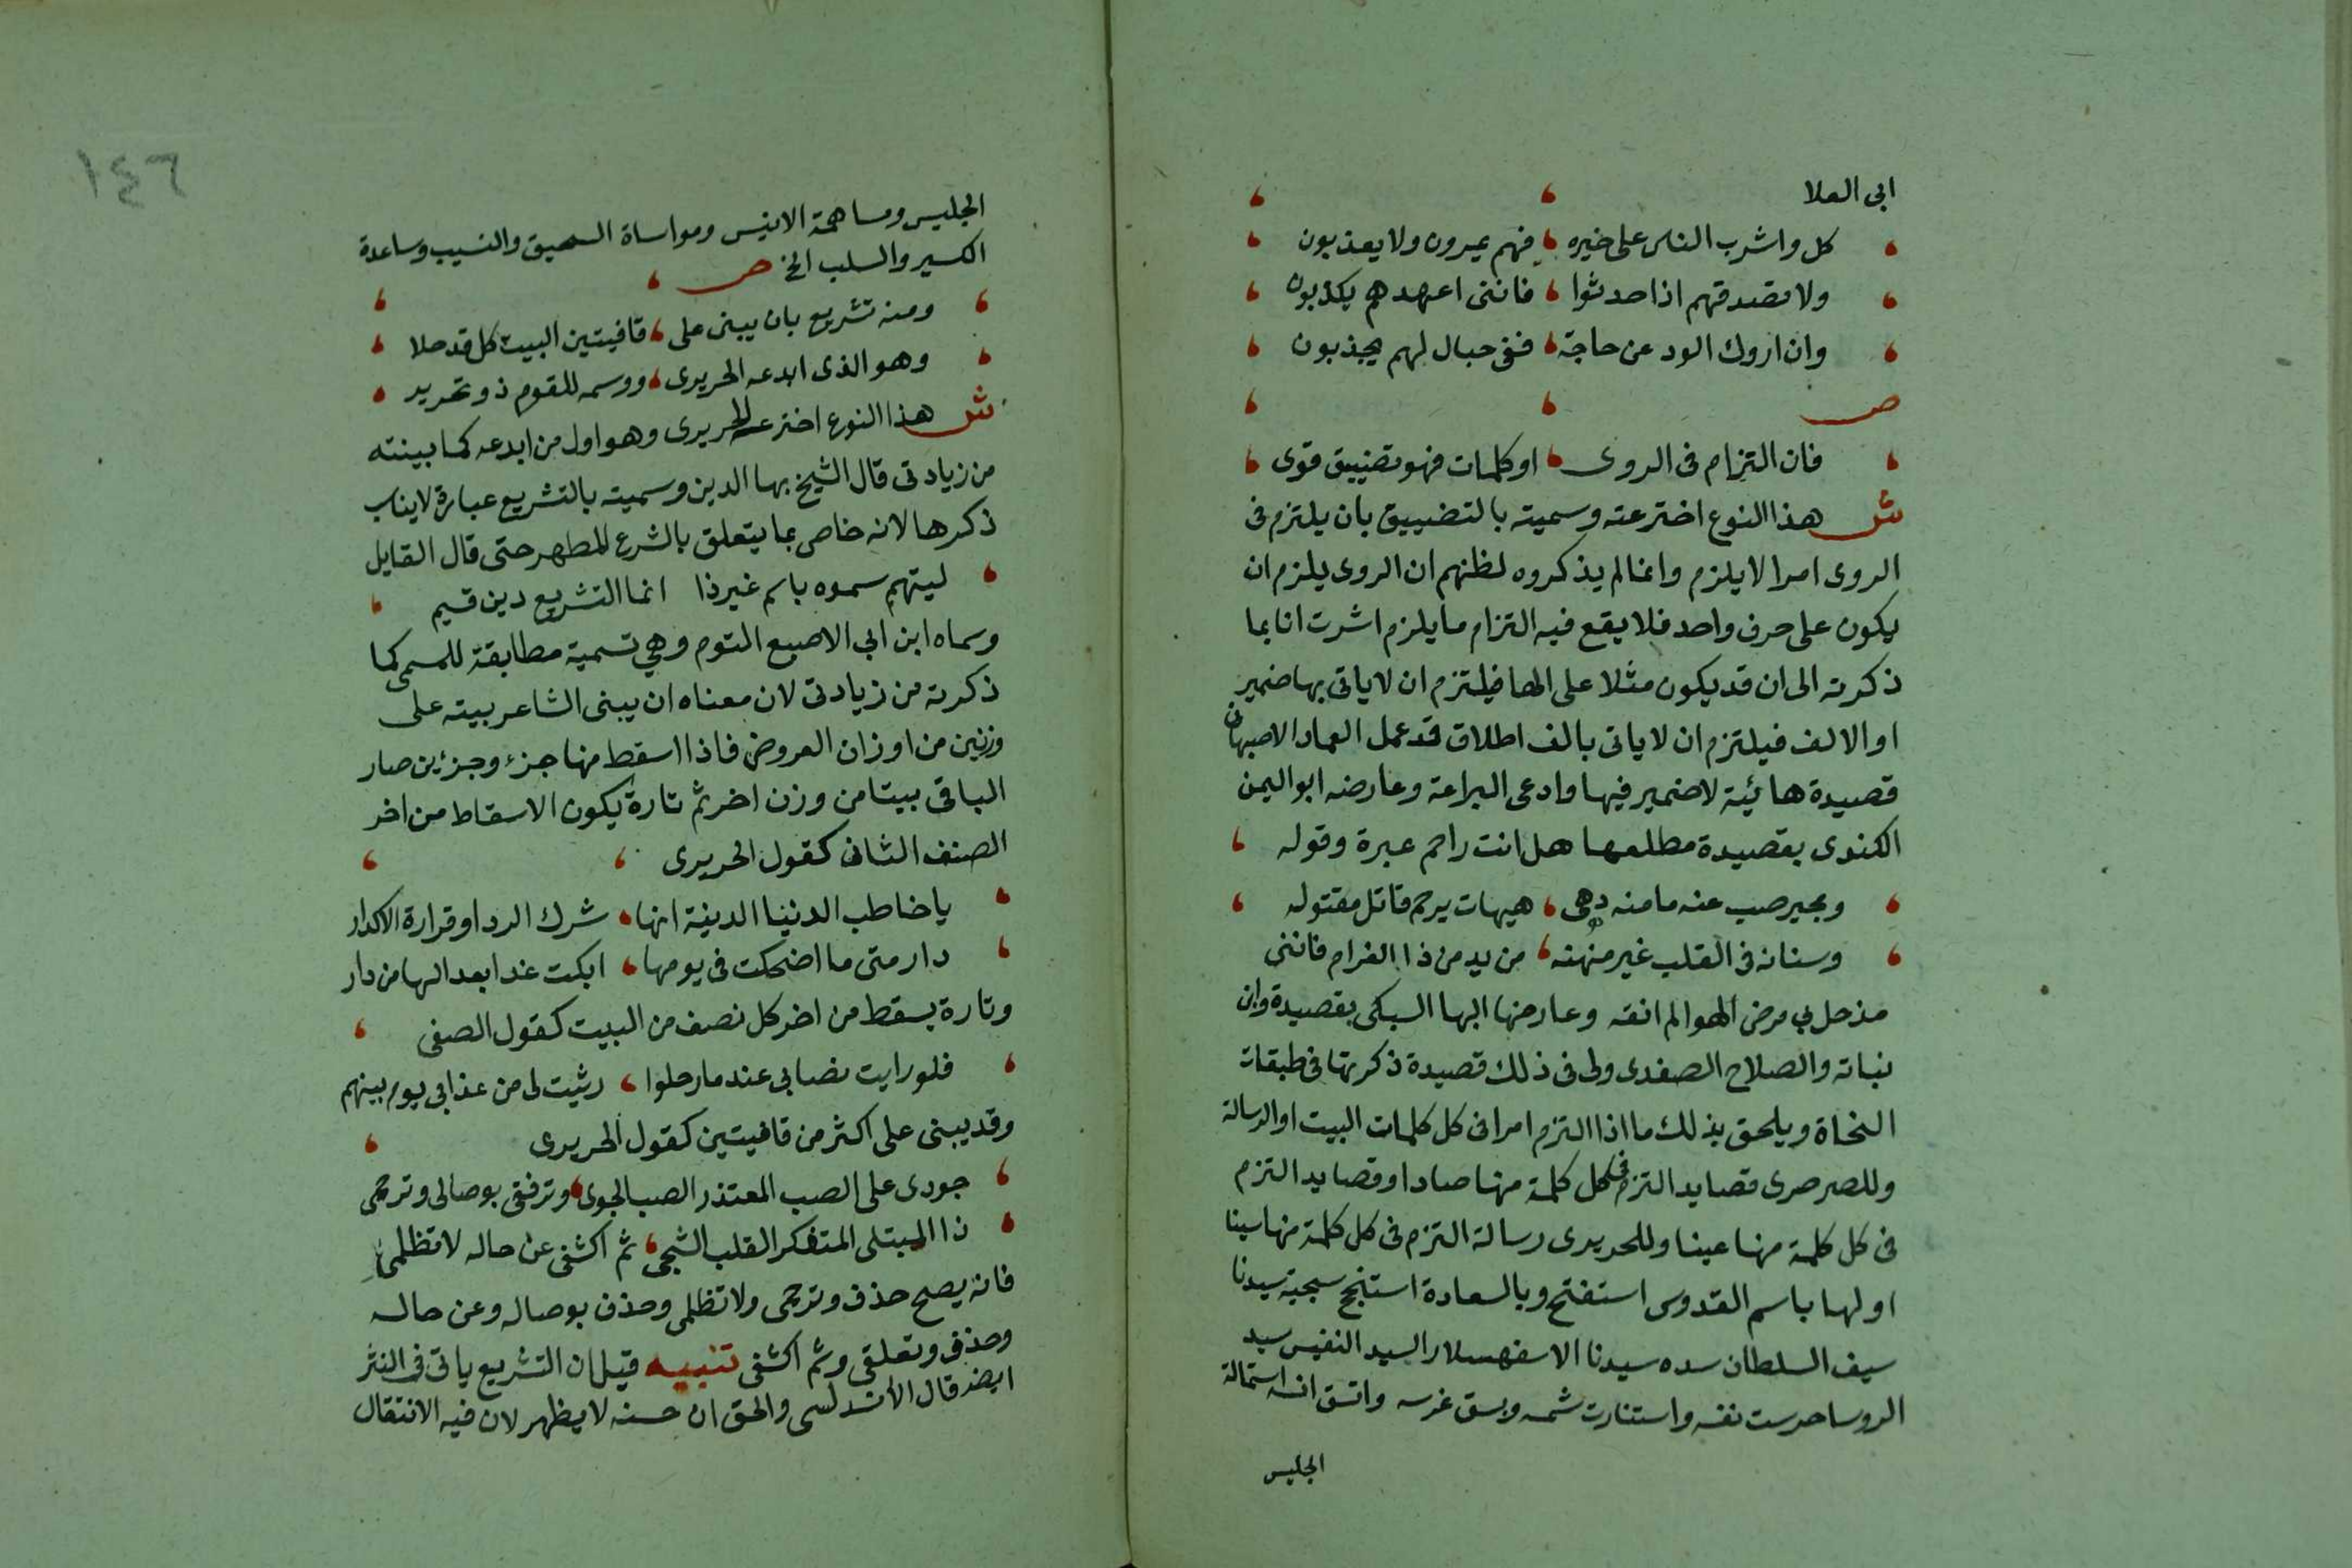 ابى العلا
كل واشرب الناس على خيره فهم يمرون ولا يعذبون
ولا تصدقهم اذا حدثوا فاننى اعهدهم يكذبون
وان اروك الود عن حاجة ففى حبال لهم يجذبون
ص
فان التزام فى الروى او كلمات فهو تضييق قوى
ش هذا النوع اخترعته وسميته بالتضييق بان يلتزم فى
الروى امرا لا يلزم وانما لم يذكروه لظنهم ان الروى يلزم ان
يكون على حرف واحد فلا يقع فيه التزام ما يلزم اشرت انا بما
ذكرته الى ان قد يكون مثلا على الها فيلتزم ان لا ياتى بها ضمير
او الالف فيلتزم ان لا ياتى بالف اطلاق قد عمل العماد الاصبهان
قصيدة هائية لا ضمير فيها وادعى البراعة وعارضه ابو اليمن
الكندى بقصيدة مطلعها هل انت راحم عبرة وقوله
وبجير صب عنه ما منه دهى هيهات يرحم قاتل مقتوله
وسنانه فى القلب غير منهنه من يد من ذا الغرام فاننى
مذ حل بى مرض الهوا لم انقه وعارضها البها السبكى بقصيدة وابن
نباته والصلاح الصفدى ولى فى ذلك قصيدة ذكرتها فى طبقات
النحاة ويلحق بذلك ما اذا التزم امرا فى كل كلمات البيت او الرسالة
وللصرصرى قصايد التزم فى كل كلمة منها صادا وقصايد التزم
فى كل كلمة منها عينا وللحريرى رسالة التزم فى كل كلمة منها سينا
اولها باسم القدوس استفتح وبالسعادة استنجح سجية سيدنا
سيف السلطان سده سيدنا الاسفهسلار السيد النفيس سيد
الروسا حرست نفسه واستنارت شمسه وبسق غرسه واتسق انسه استمالة
الجليس
١٤٦
الجليس ومساهمة الانيس ومواساة السحيق والنسيب وساعدة
الكسير والسلب الخ ص
ومنه تشريع بان يبنى على قافيتين البيت كل قد حلا
وهو الذى ابدعه الحريرى ووسمه للقوم ذو تحرير
ش هذا النوع اخترعه الحريرى وهو اول من ابدعه كما بينته
من زيادتى قال الشيخ بها الدين وسميته بالتشريع عبارة لايناسب
ذكرها لانه خاص بما يتعلق بالشرع المطهر حتى قال القايل
ليتهم سموه باسم غير ذا انما التشريع دين قيم
وسماه ابن ابى الاصبع التوم وهي تسمية مطابقة للمسمى كما
ذكرته من زيادتى لان معناه ان يبنى الشاعر بيته على
وزنين من اوزان العروض فاذا اسقط منها جزء وجزئين صار
الباقى بيتا من وزن اخر ثم تارة يكون الاسقاط من اخر
الصنف الثانى كقول الحريرى
يا خاطب الدنيا الدنية انها شرك الردا وقرارة الاكدار
دار متى ما اضحكت فى يومها ابكت غدا بعدا لها من دار
وتارة يسقط من اخر كل نصف من البيت كقول الصفى
فلو رايت مصابى عندما رحلوا رثيت لى من عذابى يوم بينهم
وقد يبنى على اكثر من قافيتين كقول الحريرى
جودى على الصب المعتذر الصب الجوى وترفق بوصالى وترحمى
ذا المبتلى المتفكر القلب الشجى ثم اكشفى عن حاله لا تظلمى
فانه يصح حذف وترحمى ولا تظلمى وحذف بوصاله وعن حاله
وحذف وتعلقى وثم اكشفى تنبيه قيل ان التشريع ياتى فى النثر
ايضا قال الاندلسى والحق ان حسنه لا يظهر لان فيه الانتقال